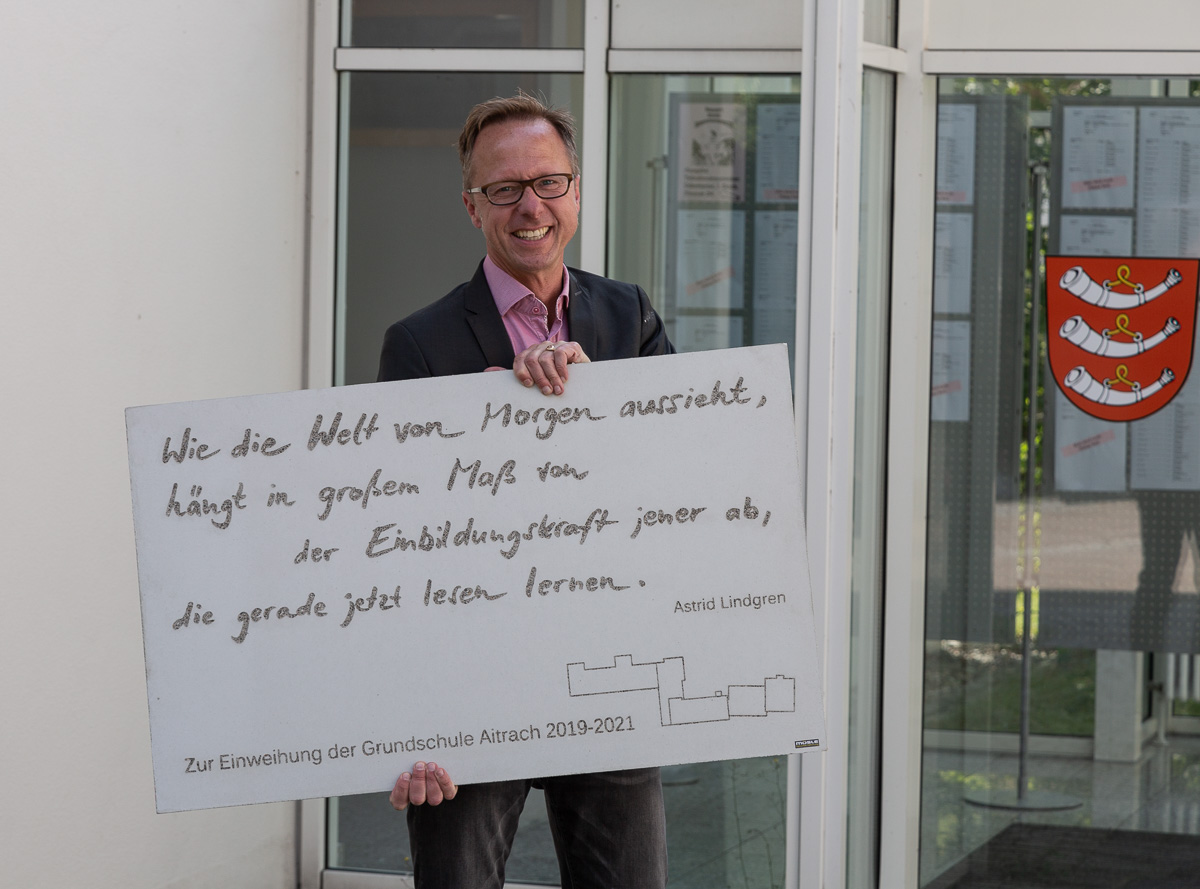 Wie die Welt von Morgen aussieht,
hängt in großem Maß von
der Einbildungskraft jener ab,
die gerade jetzt lesen lernen.
Astrid Lindgren
Zur Einweihung der Grundschule Aitrach 2019-2021